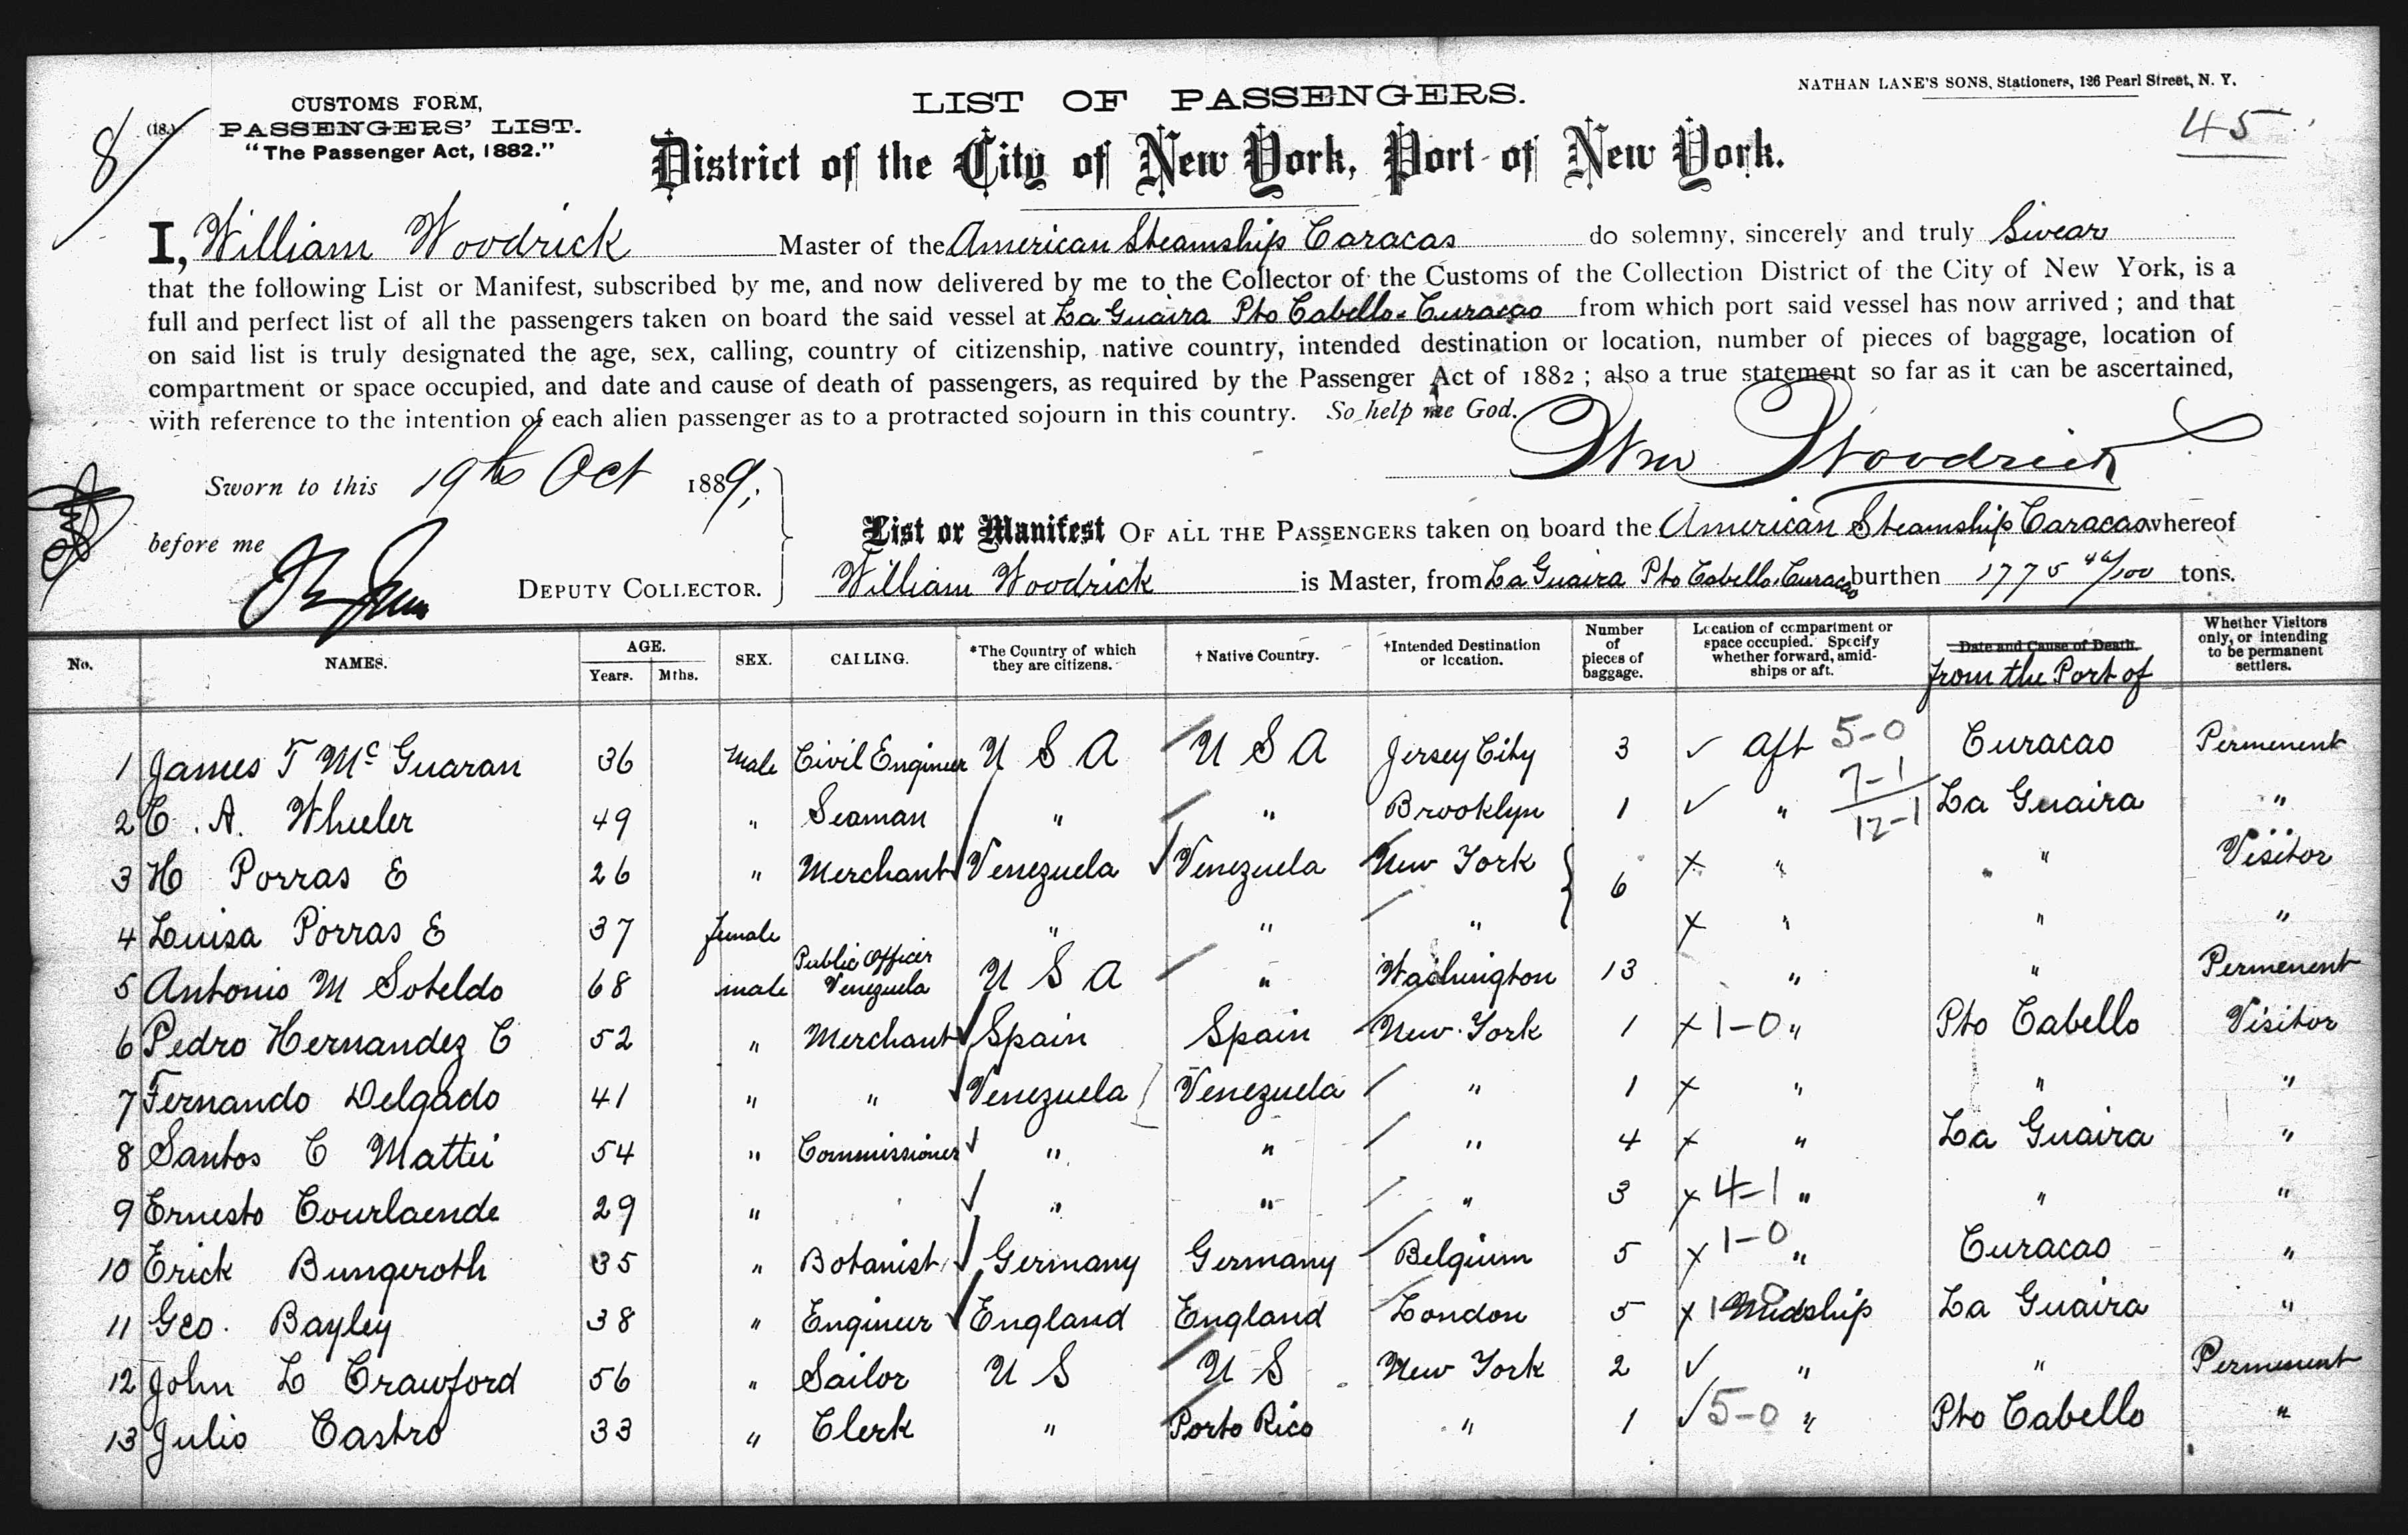 NATHAN LANE'S SONS, Stationers, 126 Pearl Street, N. Y.
CUSTOMS FORM,
LIST OF PASSENGERS.
8/
(18.)
PASSENGERS' LIST.
45
"The Passenger Act, 1882."
District of the City of New York, Port of New York.
I, William Woodrick Master of the American Steamship Caracas do solemny, sincerely and truly Swear
that the following List or Manifest, subscribed by me, and now delivered by me to the Collector of the Customs of the Collection District of the City of New York, is a
full and perfect list of all the passengers taken on board the said vessel at La Guaira Pto Cabello & Curacao from which port said vessel has now arrived ; and that
on said list is truly designated the age, sex, calling, country of citizenship, native country, intended destination or location, number of pieces of baggage, location of
compartment or space occupied, and date and cause of death of passengers, as required by the Passenger Act of 1882 ; also a true statement so far as it can be ascertained,
with reference to the intention of each alien passenger as to a protracted sojourn in this country. So help me God.
Wm Woodrick
Sworn to this 19th Oct 1889,
before me
DEPUTY COLLECTOR.
List or Manifest OF ALL THE PASSENGERS taken on board the American Steamship Caracas whereof
William Woodrick is Master, from La Guaira Pto Cabello, Curacao burthen 1775 46/100 tons.
No. NAMES. AGE. Years. Mths. SEX. CALLING. *The Country of which they are citizens. † Native Country. †Intended Destination or location. Number of pieces of baggage. Location of compartment or space occupied. Specify whether forward, amidships or aft. Date and Cause of Death. from the Port of Whether Visitors only, or intending to be permanent settlers.
1 James T McGuaran 36 Male Civil Engineer U S A U S A Jersey City 3 ✓ aft 5-0 Curacao Permenent
2 C. A. Wheeler 49 " Seaman " " Brooklyn 1 ✓ " 7-1 12-1 La Guaira "
3 H Porras E 26 " Merchant Venezuela Venezuela New York 6 x " " Visitor
4 Luisa Porras E 37 female " " " x " " "
5 Antonio M Soteldo 68 male Public Officer Venezuela U S A " Washington 13 " " Permenent
6 Pedro Hernandez C 52 " Merchant Spain Spain New York 1 x 1-0 " Pto Cabello Visitor
7 Fernando Delgado 41 " " Venezuela Venezuela " 1 x " " "
8 Santos C Mattei 54 " Commissioner " " " 4 x " La Guaira "
9 Ernesto Courlaende 29 " " " " 3 x 4-1 " " "
10 Erick Bungeroth 35 " Botanist Germany Germany Belgium 5 x 1-0 " Curacao "
11 Geo. Bayley 38 " Engineer England England London 5 x 1-0 Midship La Guaira "
12 John L Crawford 56 " Sailor U S U S New York 2 ✓ " " Permenent
13 Julio Castro 33 " Clerk " Porto Rico " 1 ✓ 5-0 " Pto Cabello "